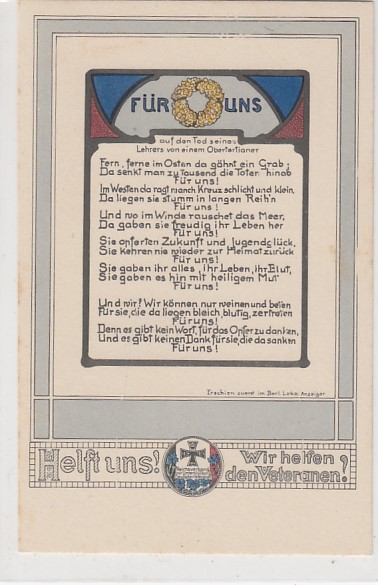 FÜR UNS
auf den Tod seines
Lehrers von einem Obertertianer
Fern, ferne im Osten da gähnt ein Grab;
Da senkt man zu Tausend die Toten hinab
Für uns!
Im Westen da ragt manch Kreuz schlicht und klein,
Da liegen sie stumm in langen Reih'n
Für uns!
Und wo im Winde rauschet das Meer,
Da gaben sie freudig ihr Leben her
Für uns!
Sie opferten Zukunft und Jugendglück,
Sie kehren nie wieder zur Heimat zurück
Für uns!
Sie gaben ihr alles, ihr Leben, ihr Blut,
Sie gaben es hin mit heiligem Mut
Für uns!
Und wir? Wir können nur weinen und beten
Für sie, die da liegen bleich, blutig, zertreten
Für uns!
Denn es gibt kein Wort, für das Opfer zu danken,
Und es gibt keinen Dank für sie, die da sanken
Für uns!
Erschien zuerst im Berl. Lokal Anzeiger
Helft uns! Wir helfen
den Veteranen!